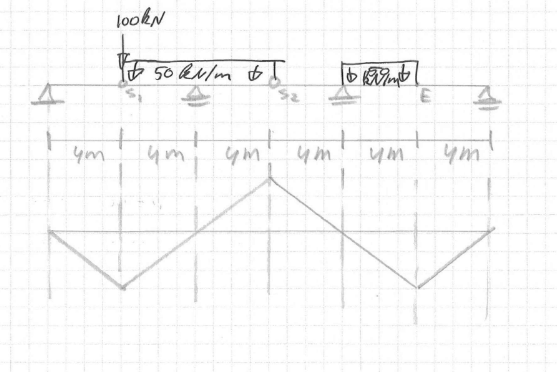 100kN
50 kN/m
S1
S2
E
4m 4m 4m 4m 4m 4m